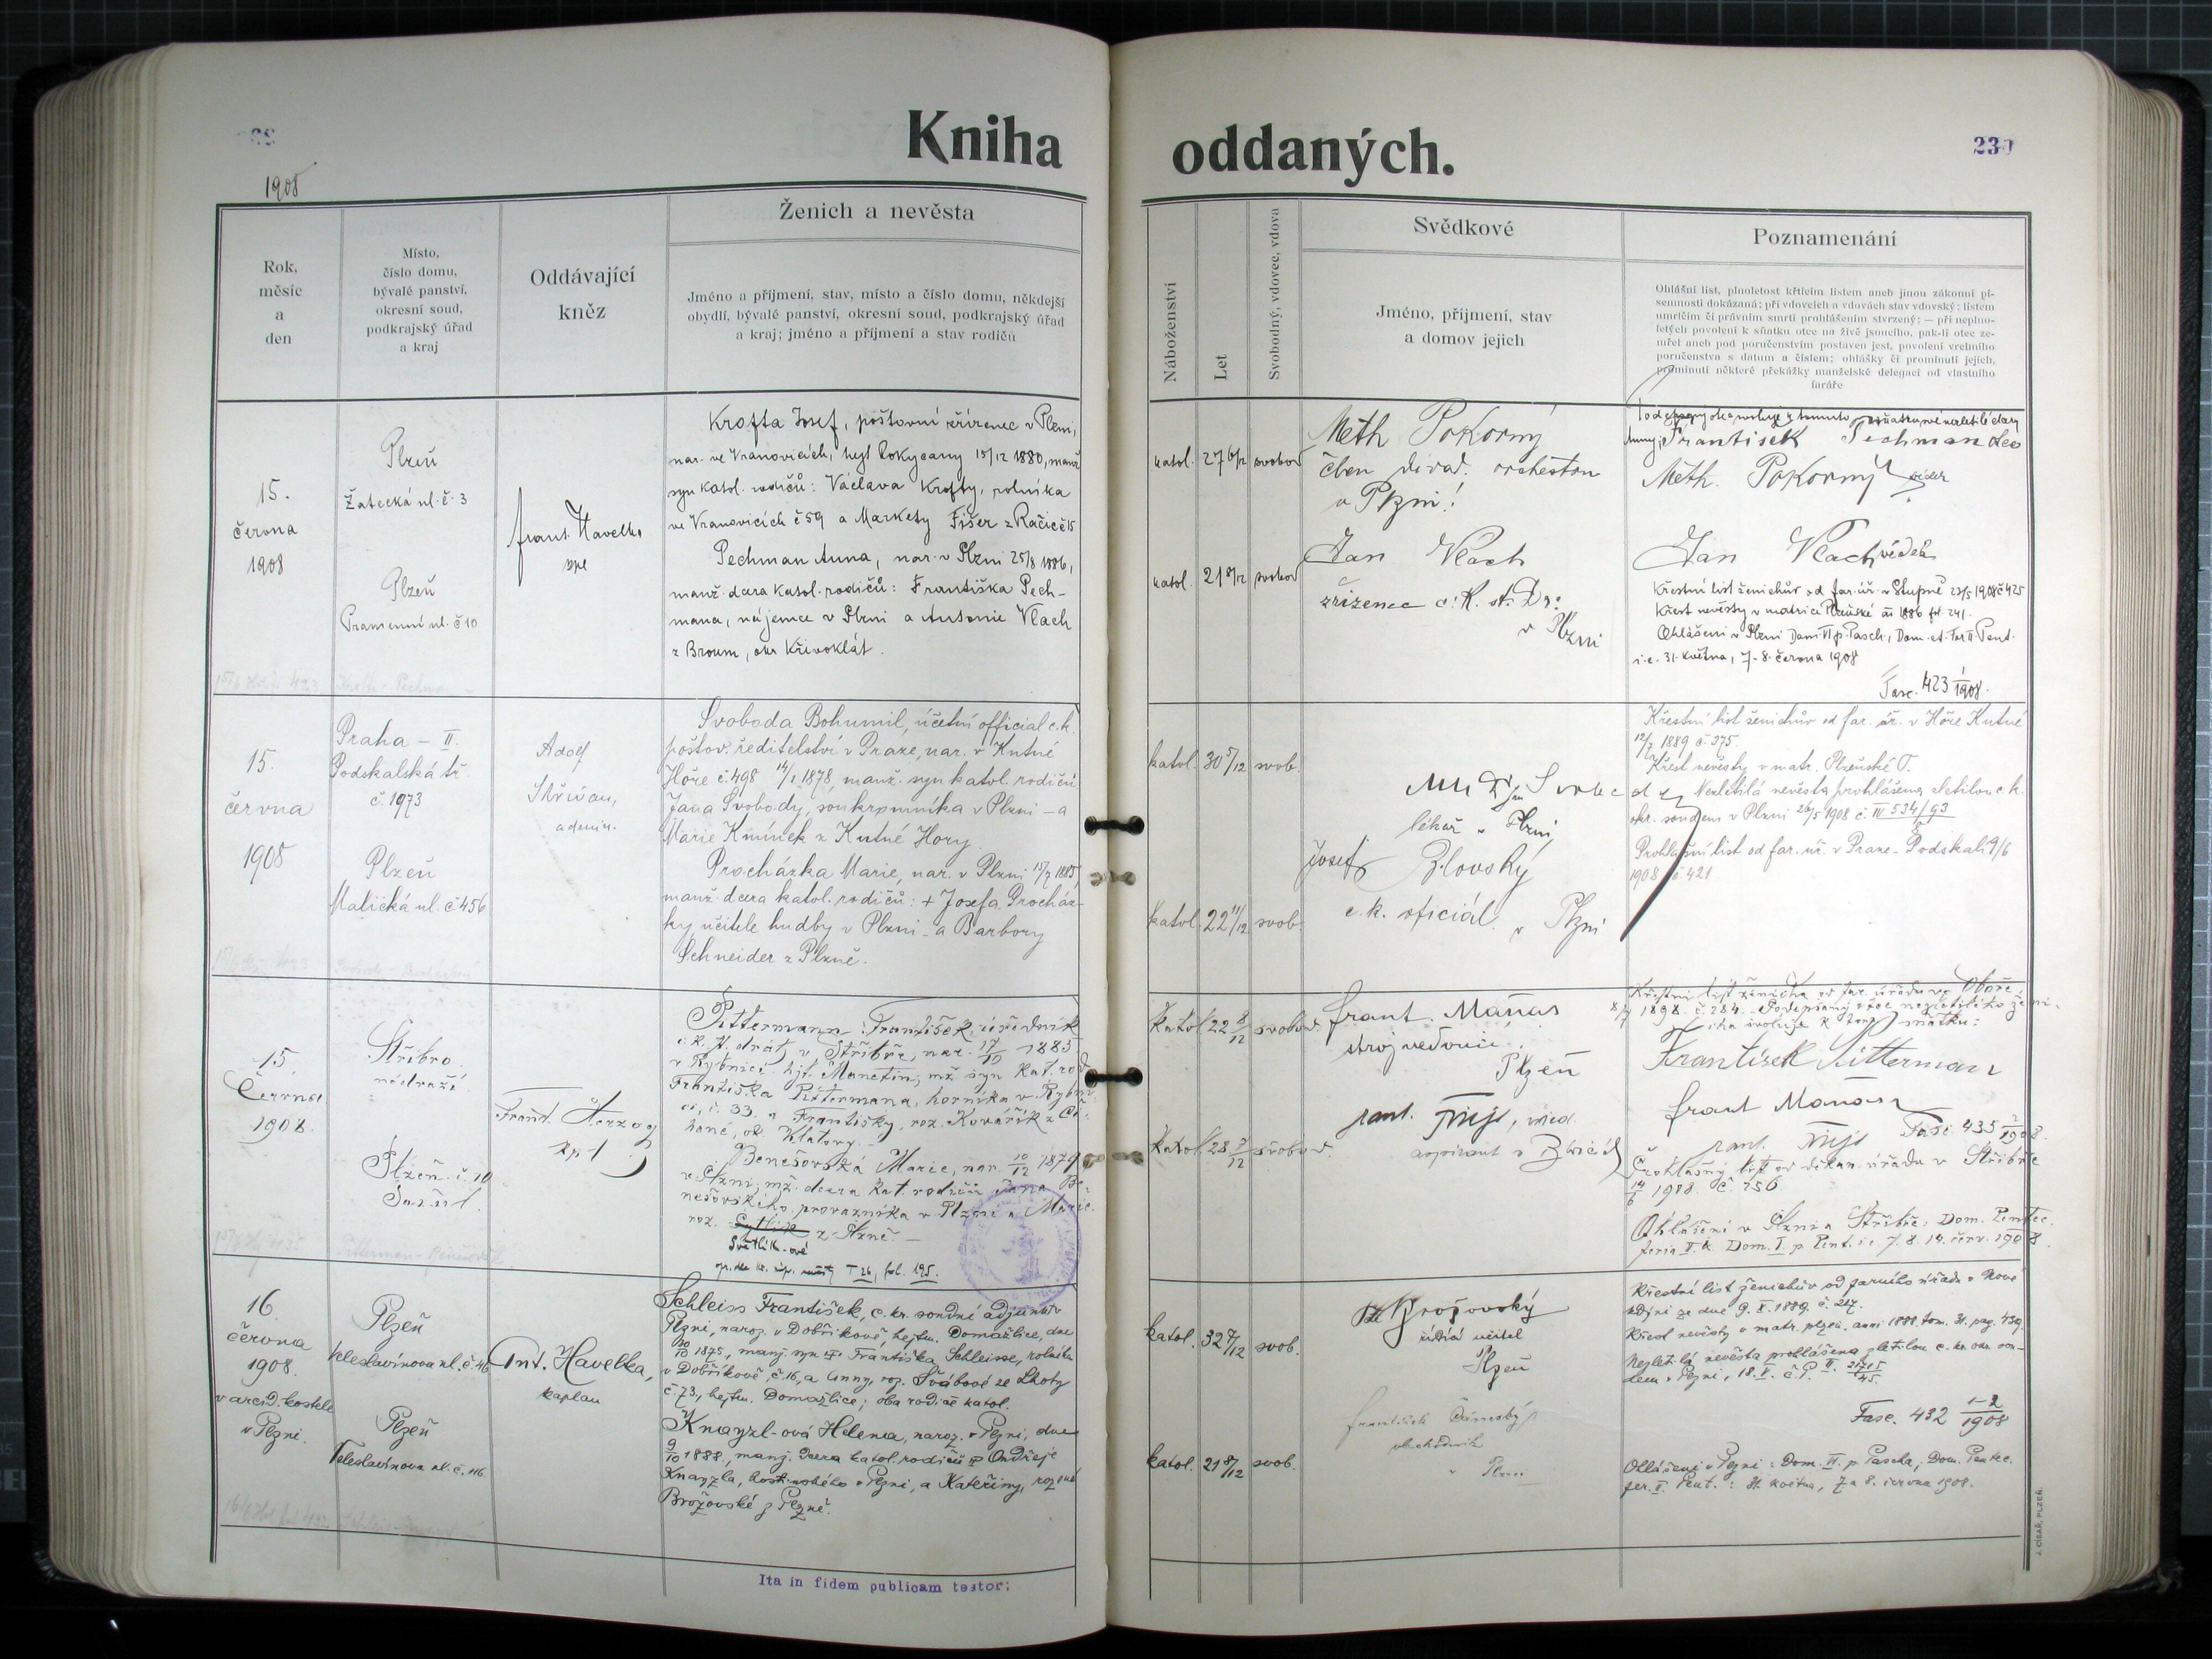 Kniha
oddaných.
230
1908
Rok,
měsíc
a
den
Místo,
číslo domu,
bývalé panství,
okresní soud,
podkrajský úřad
a kraj
Oddávající
kněz
Ženich a nevěsta
Jméno a příjmení, stav, místo a číslo domu, někdejší
obydlí, bývalé panství, okresní soud, podkrajský úřad
a kraj; jméno a příjmení a stav rodičů
Náboženství
Let
Svobodný, vdovec, vdova
Svědkové
Jméno, příjmení, stav
a domov jejich
Poznamenání
Ohlášní list, plnoletost křticím listem aneb jinou zákonní pí-
semností dokázaná; při vdovcích a vdovách stav vdovský; listem
umrlčím či právním smrti prohlášením stvrzený; — při neplno-
letých povolení k sňatku otce na živě jsoucího, pak-li otec ze-
mřel aneb pod poručenstvím postaven jest, povolení vrchního
poručenstva s datum a číslem; ohlášky či prominutí jejich,
prominutí některé překážky manželské delegací od vlastního
faráře
15.
června
1908
Plzeň
Žatecká ul. č. 3
Plzeň
Pramenní ul. č 10
Frant. Havelka
Krofta Josef, poštovní zřízenec v Plzni,
nar. ve Vranovicích, hejt Rokycany 15/12 1880, manž
syn katol. rodičů: Václava Krofty, rolníka
ve Vranovicích č 59 a Markety Fišer z Račic č 15
Pechman Anna, nar. v Plzni 25/8 1886,
manž. dcera katol. rodičů: Františka Pech-
mana, nájemce v Plzni a Antonie Vlach
z Broum, okr Křivoklát.
katol. 27 6/12 svobod
katol. 21 9/12 svobod
Meth Pokorný
člen divad. orchestru
v Plzni!
Jan Vlach
zřízenec c. k. st. Dr.
v Plzni
František Pechman
Meth. Pokorný svědek
Jan Vlach svědek
Křestní list ženichův od far. úř. v Stupně 23/5 1908 č 425
Křest nevěsty v matrice Plzeňské 1886 fol. 241.
Ohlášeni v Plzni Dom VI p. Pasch., Dom. et. Fer II. Pent.
i. e. 31. května, 7. 8. června 1908
Fasc. 423 1/1908.
15.
června
1908
Praha – II.
Podskalská tř.
č. 1973
Plzeň
Malická ul. č 456
Adolf
Skřivan,
admin.
Svoboda Bohumil, účetní official c. k.
poštov. ředitelství v Praze, nar. v Kutné
Hoře č. 498 14/1 1878, manž. syn katol. rodičů
Jana Svobody, soukromníka v Plzni – a
Marie Kmínek z Kutné Hory.
Procházka Marie, nar. v Plzni 15/7 1885,
manž. dcera katol. rodičů: + Josefa Procház-
ky, učitele hudby v Plzni – a Barbory
Schneider z Plzně.
katol. 30 5/12 svob.
katol. 22 11/12 svob.
MUDr Jan Svoboda
lékař v Plzni
Josef Blovský
c. k. oficiál v Plzni
Křestní list ženichův od far. úř. v Hoře Kutné
12/7 1889 č. 375.
Křest nevěsty v matr. Plzeňské
Nezletilá nevěsta prohlášena zletilou c. k.
okr. soudem v Plzni 26/5 1908 č. IV 534/93
Prohlášní list od far. úř. v Praze – Podskalí 9/6
1908 č. 421
15.
června
1908.
Stříbro
nádraží.
Plzeň č. 10
Frant. Herzog
Pittermann František, úředník
c. k. st. drah v Stříbře, nar. 17/10 1885
v Rybnici hjt. Manětín, mž syn kat. rod
Františka Pittermana, horníka v Rybni-
ci, č. 33. a Františky, roz. Kovářík z
Benešovská Marie, nar. 10/12 1879
v Plzni, mž. dcera kat. rodičů Jana Be-
nešovského provazníka v Plzni a Marie
roz. z Plzně. –
Světlík-ové
T 26, fol. 195.
Katol 22 8/12 svobod.
Katol 28 7/12 svobod.
Frant. Maňas
strojvedoucí
Plzeň
Křestní list ženicha od far. úřadu
8/7 1898. č. 284. Podepsaný otec nezletilého ženi-
cha svoluje k tomu sňatku:
František Pitterman
Frant Maňas
Fasc 435 1/1908.
Prohlášný list od děkan. úřadu v Stříbře
14/6 1908. č. 256
Ohlášeni v Plzni a Stříbře: Dom. Pentec.
feria II. & Dom. I. p. Pent. i. e. 7. 8. 14. červ. 1908
16.
června
1908.
v arcid. kostele
v Plzni.
Plzeň
Veleslavínova ul. č. 46
Plzeň
Veleslavínova ul. č. 46.
Ant. Havelka,
kaplan
Schleiss František, c. kr. soudní adjunkt v
Plzni, naroz. v Dobříkově hejtm. Domažlice, dne
1875, manž. syn Františka Schleisse, rolníka
v Dobříkově, č. 16, a Anny, roz. Švábové ze Lhoty
č. 73, hejtm. Domažlice; oba rodiče katol.
Knayzl-ová Helena, naroz. v Plzni, dne
9/10 1888., manž. dcera katol. rodičů Ondřeje
Knayzla, hostinského v Plzni, a Kateřiny, rozené
Brožovské z Plzně.
katol. 32 7/12 svob.
katol. 21 8/12 svob.
Brožovský
řídící učitel
Plzeň
František
obchodník
v Plzni
Křestní list ženichův od farního úřadu v Nové
kdyni ze dne 9. X. 1889. č. 217.
Křest nevěsty v matr. plzeň. anni 1888 tom. 31. pag. 439.
Nezletilá nevěsta prohlášena zletilou c. kr. okr. sou-
dem v Plzni, 18. V.
Fasc. 432 1-2/1908
Ohlášeni v Plzni: Dom. VI. p. Pascha, Dom. Pentec.
fer. II. Pent.: 31. května, 7. a 8. června 1908.
Ita in fidem publicam testor:
J. CÍSAŘ, PLZEŇ.